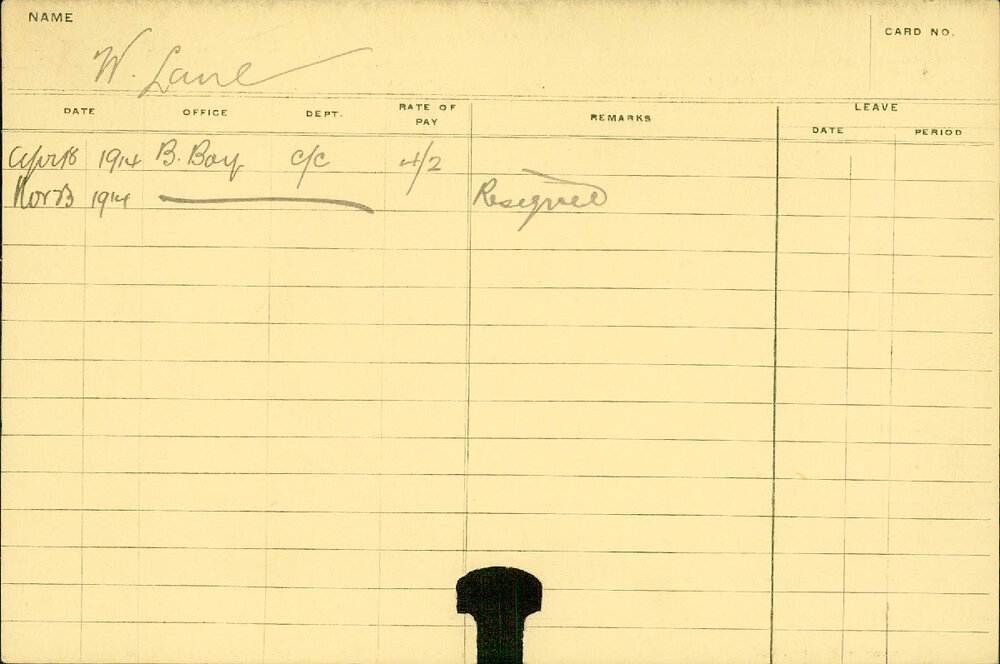 NAME
CARD NO.
W. Lane
DATE OFFICE DEPT. RATE OF PAY REMARKS LEAVE
DATE PERIOD
Apr 18 1914 B. Boy c/c 4/2
Nov 13 1914 Resigned